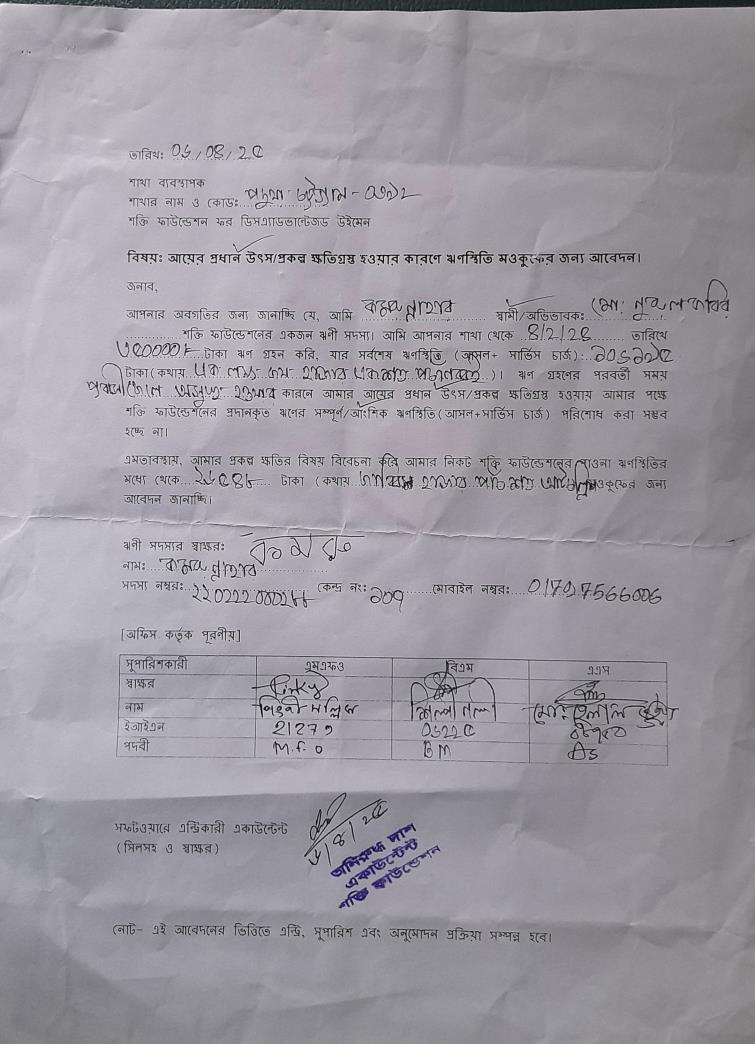 তারিখ: ০৬/০৪/২৫
শাখা ব্যবস্থাপক
শাখার নাম ও কোড: পদুয়া চট্টগ্রাম -
শক্তি ফাউন্ডেশন ফর ডিসএ্যাডভান্টেজড উইমেন
বিষয়: আয়ের প্রধান উৎস/প্রকল্প ক্ষতিগ্রস্ত হওয়ার কারণে ঋণস্থিতি মওকুফের জন্য আবেদন।
জনাব,
আপনার অবগতির জন্য জানাচ্ছি যে, আমি কামরুন্নাহার স্বামী/অভিভাবক: মো: নুরুল কবির
শক্তি ফাউন্ডেশনের একজন ঋণী সদস্য। আমি আপনার শাখা থেকে ৪/২/২৪ তারিখে
টাকা ঋণ গ্রহন করি, যার সর্বশেষ ঋণস্থিতি (আসল+ সার্ভিস চার্জ):
টাকা (কথায় এক লক্ষ হাজার একশত )। ঋণ গ্রহণের পরবর্তী সময়
কারনে আমার আয়ের প্রধান উৎস/প্রকল্প ক্ষতিগ্রস্ত হওয়ায় আমার পক্ষে
শক্তি ফাউন্ডেশনের প্রদানকৃত ঋণের সম্পূর্ণ/আংশিক ঋণস্থিতি(আসল+সার্ভিস চার্জ) পরিশোধ করা সম্ভব
হচ্ছে না।
এমতাবস্থায়, আমার প্রকল্প ক্ষতির বিষয় বিবেচনা করি আমার নিকট শক্তি ফাউন্ডেশনের পাওনা ঋণস্থিতির
মধ্যে থেকে টাকা (কথায় হাজার পাঁচ শত মওকুফের জন্য
আবেদন জানাচ্ছি।
ঋণী সদস্যর স্বাক্ষর:
নাম: কামরুন্নাহার
সদস্য নম্বর: কেন্দ্র নং: ১০৭ মোবাইল নম্বর:
[অফিস কর্তৃক পূরণীয়]
সুপারিশকারী এমএফও বিএম এএস
স্বাক্ষর Pinky
নাম পিংকী মল্লিক শিল্পী মো: হেলাল
ইআইএন ০৬২২৫
পদবী M.F.O BM AS
সফটওয়ারে এন্ট্রিকারী একাউন্টেন্ট
(সিলসহ ও স্বাক্ষর)
অনিরুদ্ধ দাশ
একাউন্টেন্ট
শক্তি ফাউন্ডেশন
নোট- এই আবেদনের ভিত্তিতে এন্ট্রি, সুপারিশ এবং অনুমোদন প্রক্রিয়া সম্পন্ন হবে।